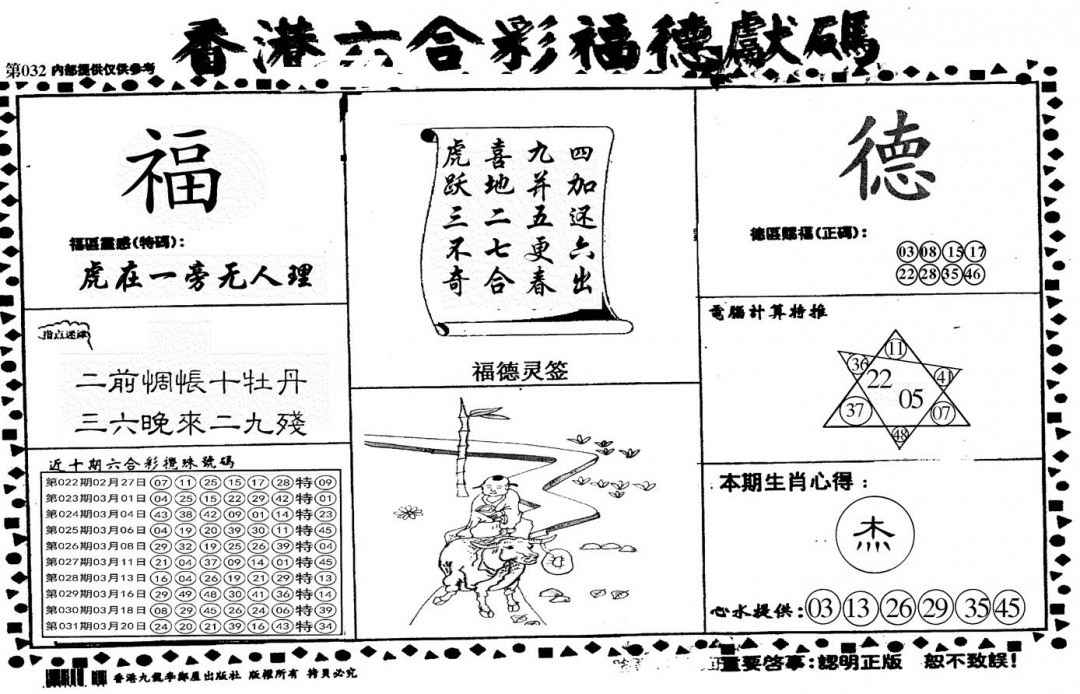 香港六合彩福德獻碼
第032 内部提供仅供参考
福
福區靈感(特碼):
虎在一旁无人理
指点迷津
二前惆悵十牡丹
三六晚來二九殘
近十期六合彩攪珠號碼
第022期02月27日 07 11 25 15 17 28 特 09
第023期03月01日 04 25 15 22 29 42 特 01
第024期03月04日 43 38 42 09 01 14 特 23
第025期03月06日 04 19 20 39 30 11 特 45
第026期03月08日 29 32 19 25 26 39 特 04
第027期03月11日 21 04 37 09 14 01 特 45
第028期03月13日 16 04 26 19 21 29 特 13
第029期03月16日 29 49 48 30 41 36 特 14
第030期03月18日 08 29 45 26 24 06 特 39
第031期03月20日 24 20 21 39 16 43 特 34
四加还六出
九并五更春
喜地二七合
虎跃三不奇
福德灵签
德
德區賜福(正碼):
03 08 15 17
22 28 35 46
電腦計算特推
11
36 22 41
05
37 07
48
本期生肖心得:
杰
心水提供: 03 13 26 29 35 45
香港九龍李鄭屋出版社 版權所有 拷貝必究
重要啓事:認明正版 恕不致誤!